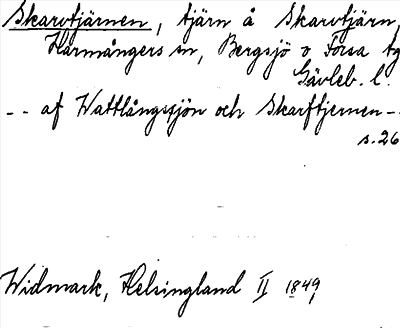 Skarvtjärnen, tjärn å Skarvtjärn,
Harmångers sn, Bergsjö o Forsa tg
Gävleb. l.
-- af Wattlångssjön och Skarftjernen --
s. 26
Widmark, Helsingland II 1849,